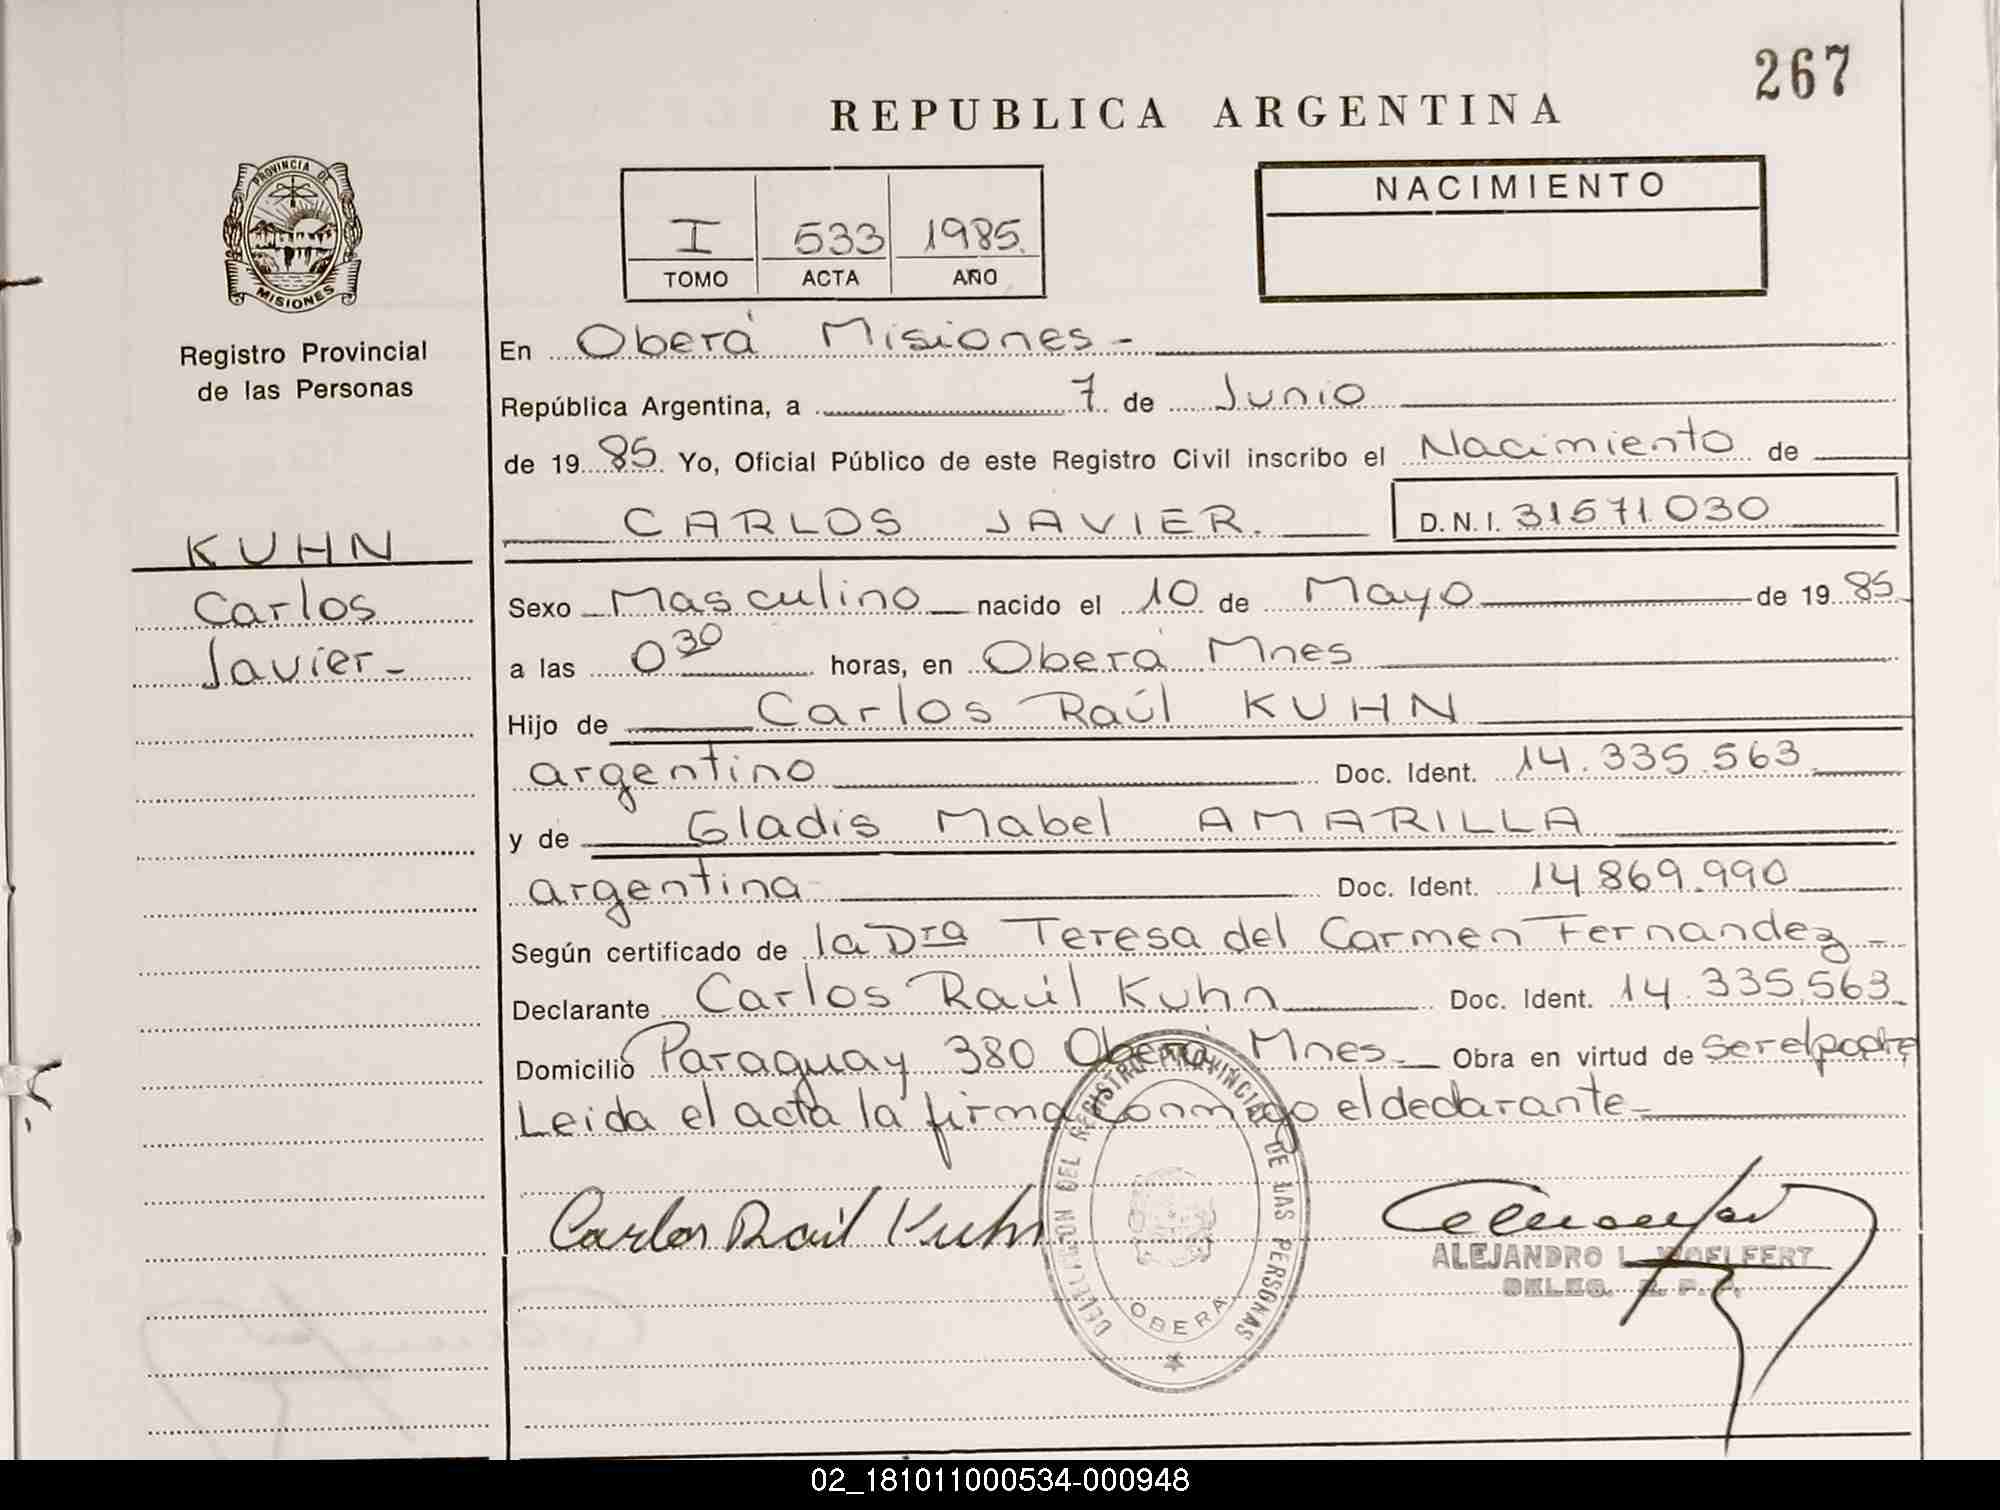 267
REPUBLICA ARGENTINA
PROVINCIA DE
MISIONES
Registro Provincial
de las Personas
I 533 1985.
TOMO ACTA AÑO
NACIMIENTO
En Oberá Misiones -
República Argentina, a 7 de Junio
de 19 85 Yo, Oficial Público de este Registro Civil inscribo el Nacimiento de
CARLOS JAVIER. D.N.I. 31571030
KUHN
Carlos
Javier -
Sexo Masculino nacido el 10 de Mayo de 19 85
a las 0 30 horas, en Oberá Mnes
Hijo de Carlos Raúl KUHN
argentino Doc. Ident. 14.335.563
y de Gladis Mabel AMARILLA
argentina Doc. Ident. 14.869.990
Según certificado de la Dra Teresa del Carmen Fernandez -
Declarante Carlos Raúl Kuhn Doc. Ident. 14.335.563
Domicilio Paraguay 380 Oberá Mnes. Obra en virtud de ser el padre
Leida el acta la firma conmigo el declarante -
Carlos Raúl Kuhn
DEL REGISTRO PROVINCIAL DE LAS PERSONAS
OBERA
ALEJANDRO L. WOELFERT
DELEG. R. P. P.
02_181011000534-000948